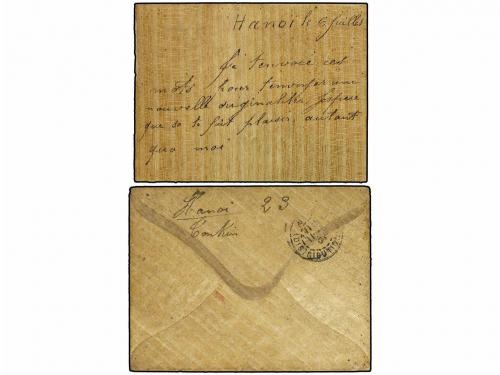 Hanoi le 6 Juillet
Je t'envoie ces
mots pour t'envoyer une
nouvelle originalité, j'espère
que sa te fera plaisir, autant
que moi
Hanoi 23
Tonkin